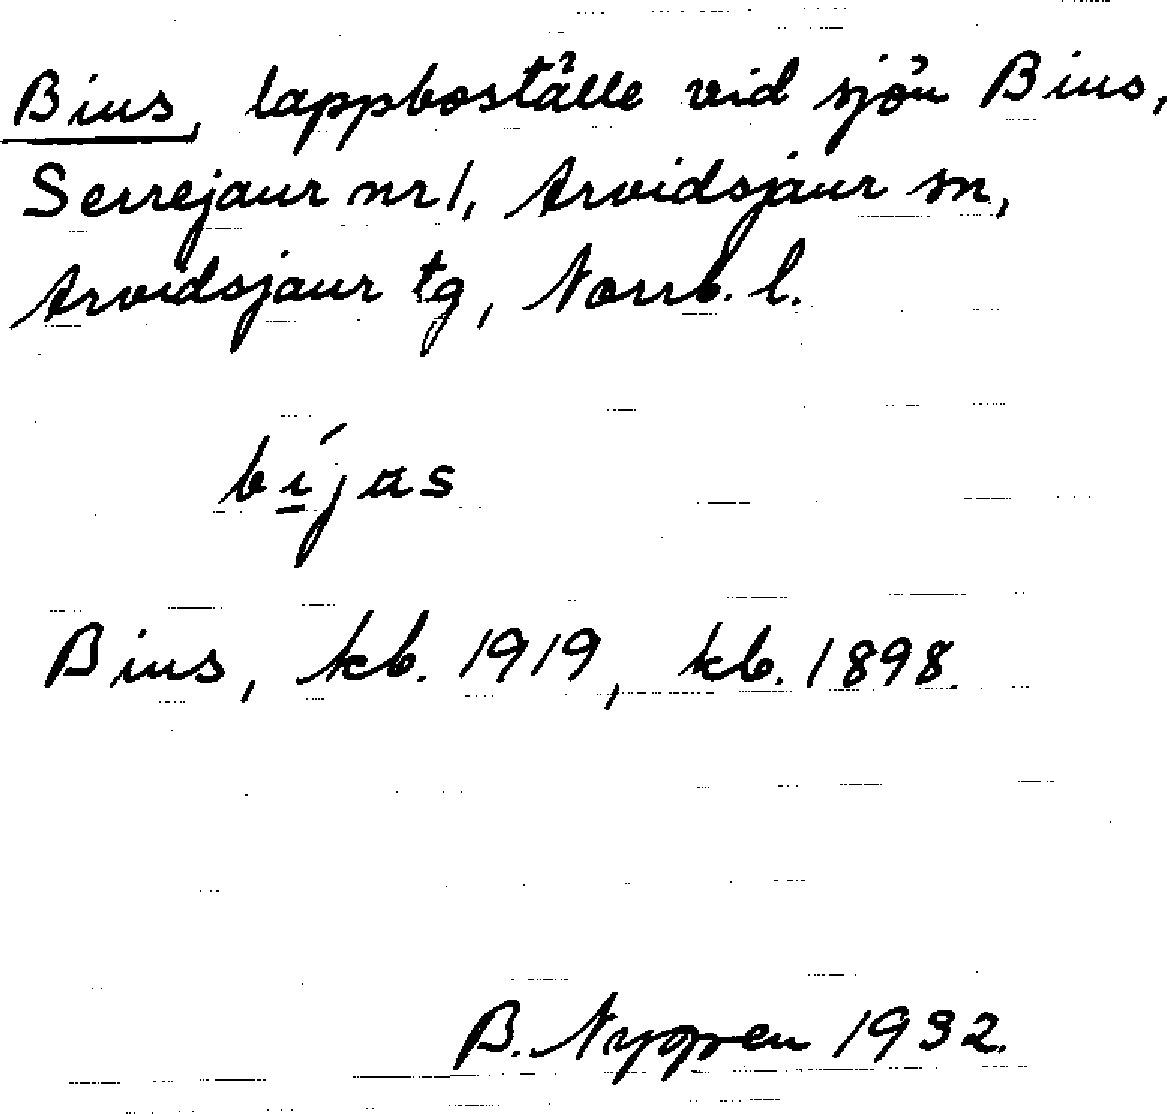 Bius, lappboställe vid sjön Bius,
Serrejaur nr 1, Arvidsjaur sn,
Arvidsjaur tg, Norrb. l.
bi̲´jas
Bius, kb. 1919, kb. 1898.
B. Nygren 1932.